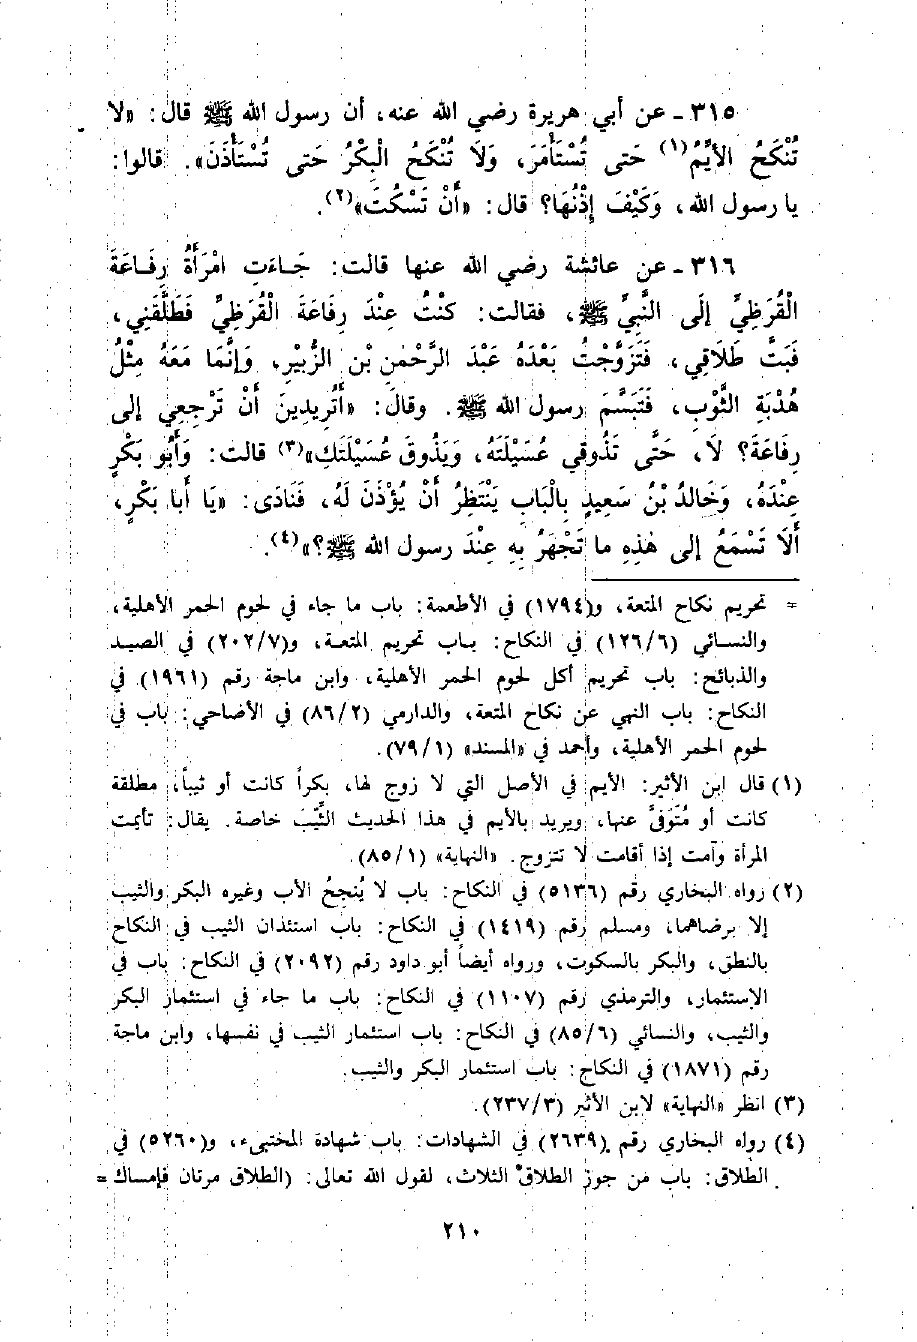 ٣١٥ ـ عن أبي هريرة رضي الله عنه، أن رسول الله ﷺ قال: «لا
تُنْكَحُ الأيِّمُ(١) حَتى تُسْتَأْمَرَ، وَلَا تُنْكَحُ الْبِكْرُ حَتى تُسْتَأْذَنَ». قالوا:
يا رسول الله، وَكَيْفَ إِذْنُهَا؟ قال: «أَنْ تَسْكُتَ»(٢).
٣١٦ ـ عن عائشة رضي الله عنها قالت: جَاءَتِ امْرَأَةُ رِفَاعَةَ
الْقُرَظِيِّ إلَى النَّبِيِّ ﷺ، فقالت: كنْتُ عِنْدَ رِفَاعَةَ الْقُرَظِيِّ فَطَلَّقَنِي،
فَبَتَّ طَلَاقِي، فَتَزَوَّجْتُ بَعْدَهُ عَبْدَ الرَّحْمٰنِ بْن الزَّبِيْرِ، وَإنَّمَا مَعَهُ مِثْلُ
هُدْبَةِ الثَّوْبِ، فَتَبَسَّمَ رسول الله ﷺ. وقالَ: «أَتُرِيدِينَ أَنْ تَرْجِعِي إلى
رِفَاعَةَ؟ لَا، حَتَّى تَذُوقِي عُسَيْلَتَهُ، وَيَذُوقَ عُسَيْلَتَكِ»(٣) قالت: وَأَبُو بَكْرٍ
عِنْدَهُ، وَخَالدُ بْنُ سَعِيدٍ بِالْبَابِ يَنْتَظِرُ أَنْ يُؤْذَنَ لَهُ، فَنَادَى: «يَا أَبا بَكْرٍ،
أَلَا تَسْمَعُ إلى هٰذِهِ ما تَجْهَرُ بِهِ عِنْدَ رسول الله ﷺ؟»(٤).
= تحريم نكاح المتعة، و(١٧٩٤) في الأطعمة: باب ما جاء في لحوم الحمر الأهلية،
والنسائي (١٢٦/٦) في النكاح: باب تحريم المتعة، و(٢٠٢/٧) في الصيد
والذبائح: باب تحريم أكل لحوم الحمر الأهلية، وابن ماجة رقم (١٩٦١) في
النكاح: باب النهي عن نكاح المتعة، والدارمي (٨٦/٢) في الأضاحي: باب في
لحوم الحمر الأهلية، وأحمد في «المسند» (٧٩/١).
(١) قال ابن الأثير: الأيم في الأصل التي لا زوج لها، بكراً كانت أو ثيباً، مطلقة
كانت أو مُتَوَفَّى عنها، ويريد بالأيم في هذا الحديث الثَّيِّبَ خاصة. يقال: تأيمت
المرأة وآمت إذا أقامت لا تتزوج. «النهاية» (٨٥/١).
(٢) رواه البخاري رقم (٥١٣٦) في النكاح: باب لا يُنْجحُ الأب وغيره البكر والثيب
إلا برضاهما، ومسلم رقم (١٤١٩) في النكاح: باب استئذان الثيب في النكاح
بالنطق، والبكر بالسكوت، ورواه أيضاً أبو داود رقم (٢٠٩٢) في النكاح: باب في
الإستئمار، والترمذي رقم (١١٠٧) في النكاح: باب ما جاء في استئمار البكر
والثيب، والنسائي (٨٥/٦) في النكاح: باب استئمار الثيب في نفسها، وابن ماجة
رقم (١٨٧١) في النكاح: باب استئمار البكر والثيب.
(٣) انظر «النهاية» لابن الأثير (٢٣٧/٣).
(٤) رواه البخاري رقم (٢٦٣٩) في الشهادات: باب شهادة المختبىء، و(٥٢٦٠) في
الطلاق: باب من جوز الطلاق الثلاث، لقول الله تعالى: (الطلاق مرتان فإمساك =
٢١٠